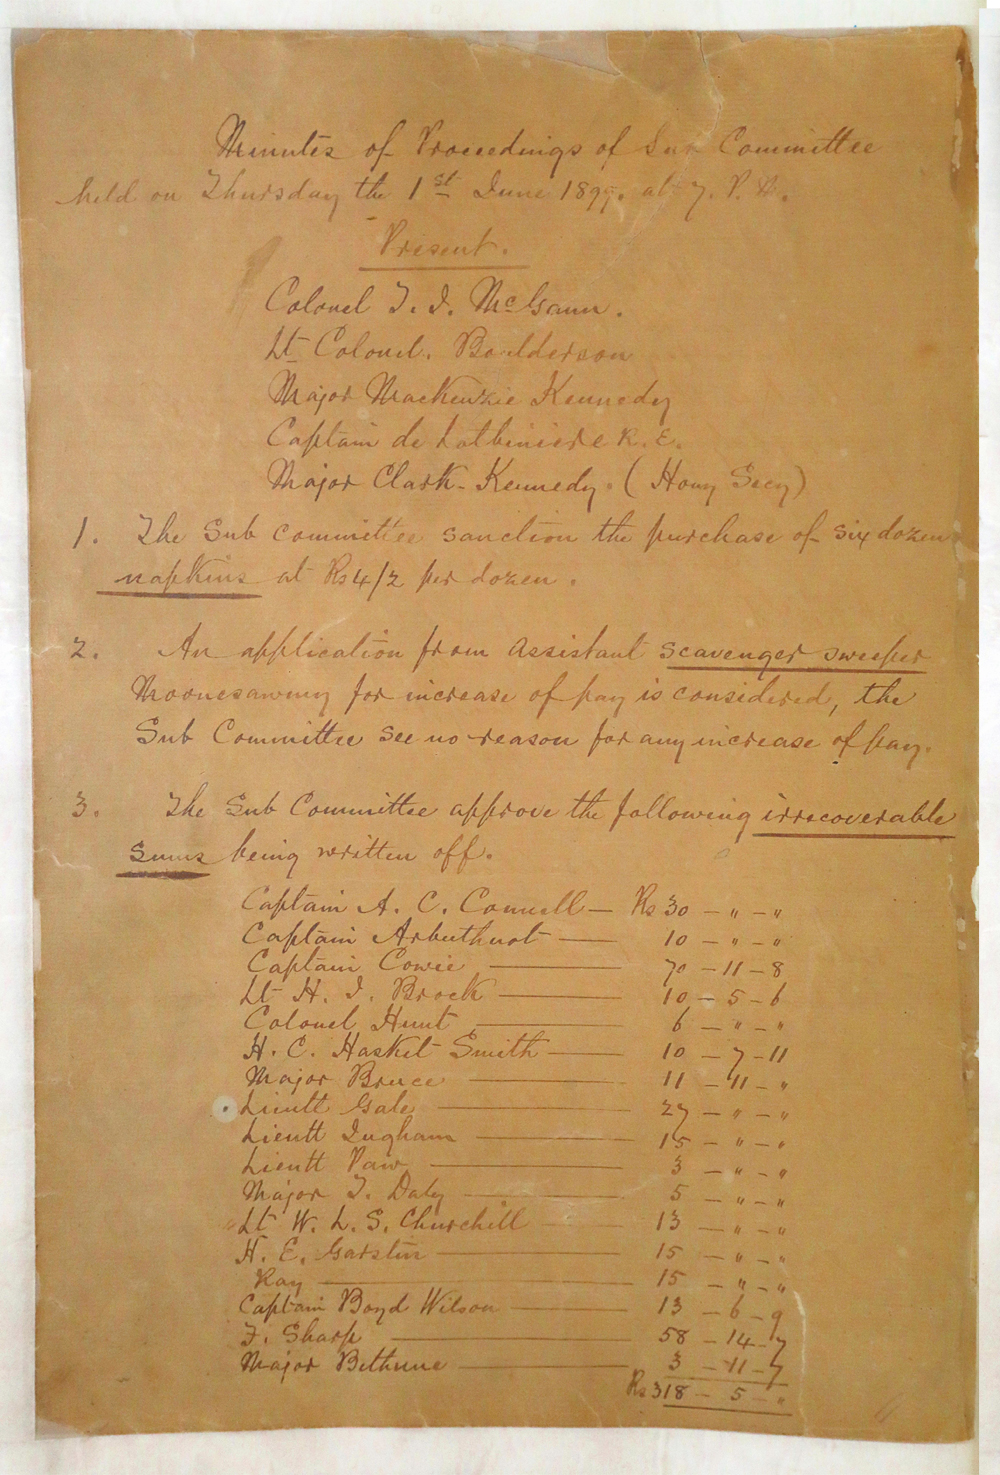 Minutes of Proceedings of Sub Committee
held on Thursday the 1st June 1899. at 7. P.M.
Present.
Colonel T. J. McGann.
Lt Colonel. Boulderson
Major Mackenzie Kennedy
Captain de Lotbiniere R. E.
Major Clark-Kennedy. (Hony Secy)
1. The Sub committee sanction the purchase of six dozen
napkins at Rs 4/2 per dozen.
2. An application from assistant scavenger sweeper
Moonesawmy for increase of pay is considered, the
Sub Committee see no reason for any increase of pay.
3. The Sub Committee approve the following irrecoverable
sums being written off.
Captain A. C. Connell — Rs 30 — " — "
Captain Arbuthnot — 10 — " — "
Captain Cowie — 70 — 11 — 8
Lt H. J. Brock — 10 — 5 — 6
Colonel Hunt — 6 — " — "
H. C. Hasket Smith — 10 — 7 — 11
Major Bruce — 11 — 11 — "
Lieutt Gale — 27 — " — "
Lieutt Ingham — 15 — " — "
Lieutt Paw — 3 — " — "
Major T. Daly — 5 — " — "
Lt W. L. S. Churchill — 13 — " — "
H. E. Garstin — 15 — " — "
Ray — 15 — " — "
Captain Boyd Wilson — 13 — 6 — 9
F. Sharp — 58 — 14 — 7
Major Bethune — 3 — 11 — 7
Rs 318 — 5 — "